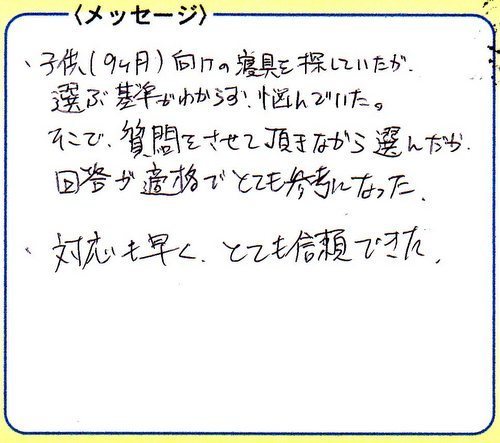 〈メッセージ〉
・子供(9ヶ月)向けの寝具を探していたが、
選ぶ基準がわからず、悩んでいた。
そこで、質問をさせて頂きながら選んだが、
回答が適格でとても参考になった。
・対応も早く、とても信頼できた。